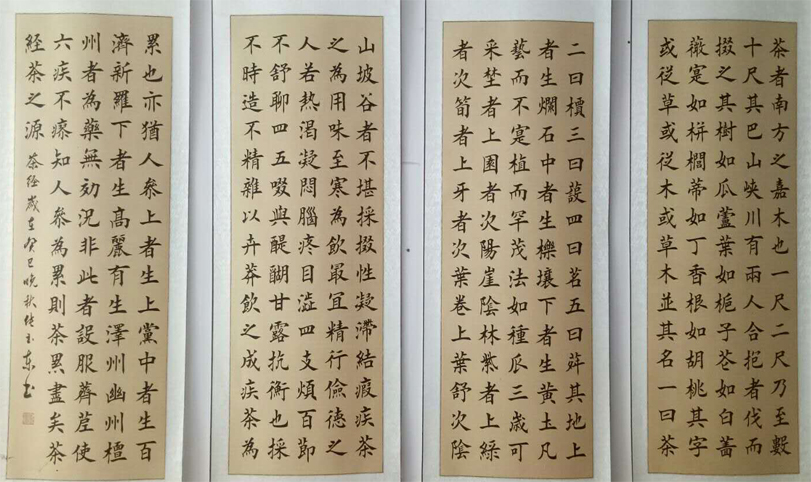 茶者南方之嘉木也一尺二尺乃至數
十尺其巴山峽川有兩人合抱者伐而
掇之其樹如瓜蘆葉如梔子花如白薔
薇寔如栟櫚蒂如丁香根如胡桃其字
或従草或従木或草木並其名一曰茶
二曰檟三曰蔎四曰茗五曰荈其地上
者生爛石中者生櫟壤下者生黄土凡
藝而不寔植而罕茂法如種瓜三歲可
采埜者上園者次陽崖陰林紫者上綠
者次筍者上牙者次葉卷上葉舒次陰
山坡谷者不堪採掇性凝滯結瘕疾茶
之為用味至寒為飲冣宜精行儉德之
人若熱渴凝悶腦疼目澁四支煩百節
不舒聊四五啜與醍醐甘露抗衡也採
不時造不精雜以卉莽飲之成疾茶為
累也亦猶人參上者生上黨中者生百
濟新羅下者生高麗有生澤州幽州檀
州者為藥無効況非此者設服薺苨使
六疾不瘳知人參為累則茶累盡矣茶
經茶之源
茶經歲在癸巳晚秋